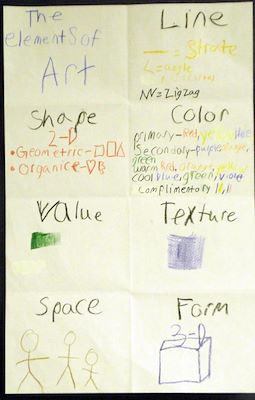 The
elements of
Art
Line
— = Straite
L = angle
NV = Zigzag
Shape
2-D
• Geometric-
• Organice-
Color
primary-Red, yellow, blue
Secondary-purple, orange,
green
warm Red, orange, yellow
cool blue, green, violet
complimentary
Value
Texture
Space
Form
3-D